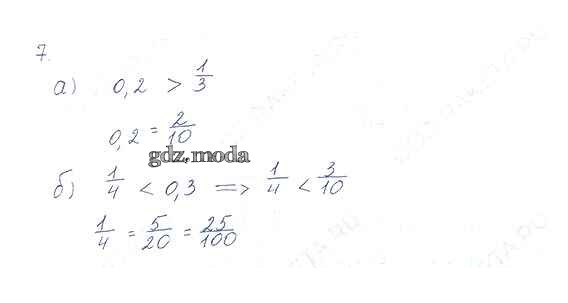 7.
а) 0,2 > 1/3
0,2 = 2/10
gdz.moda
б) 1/4 < 0,3 => 1/4 < 3/10
1/4 = 5/20 = 25/100